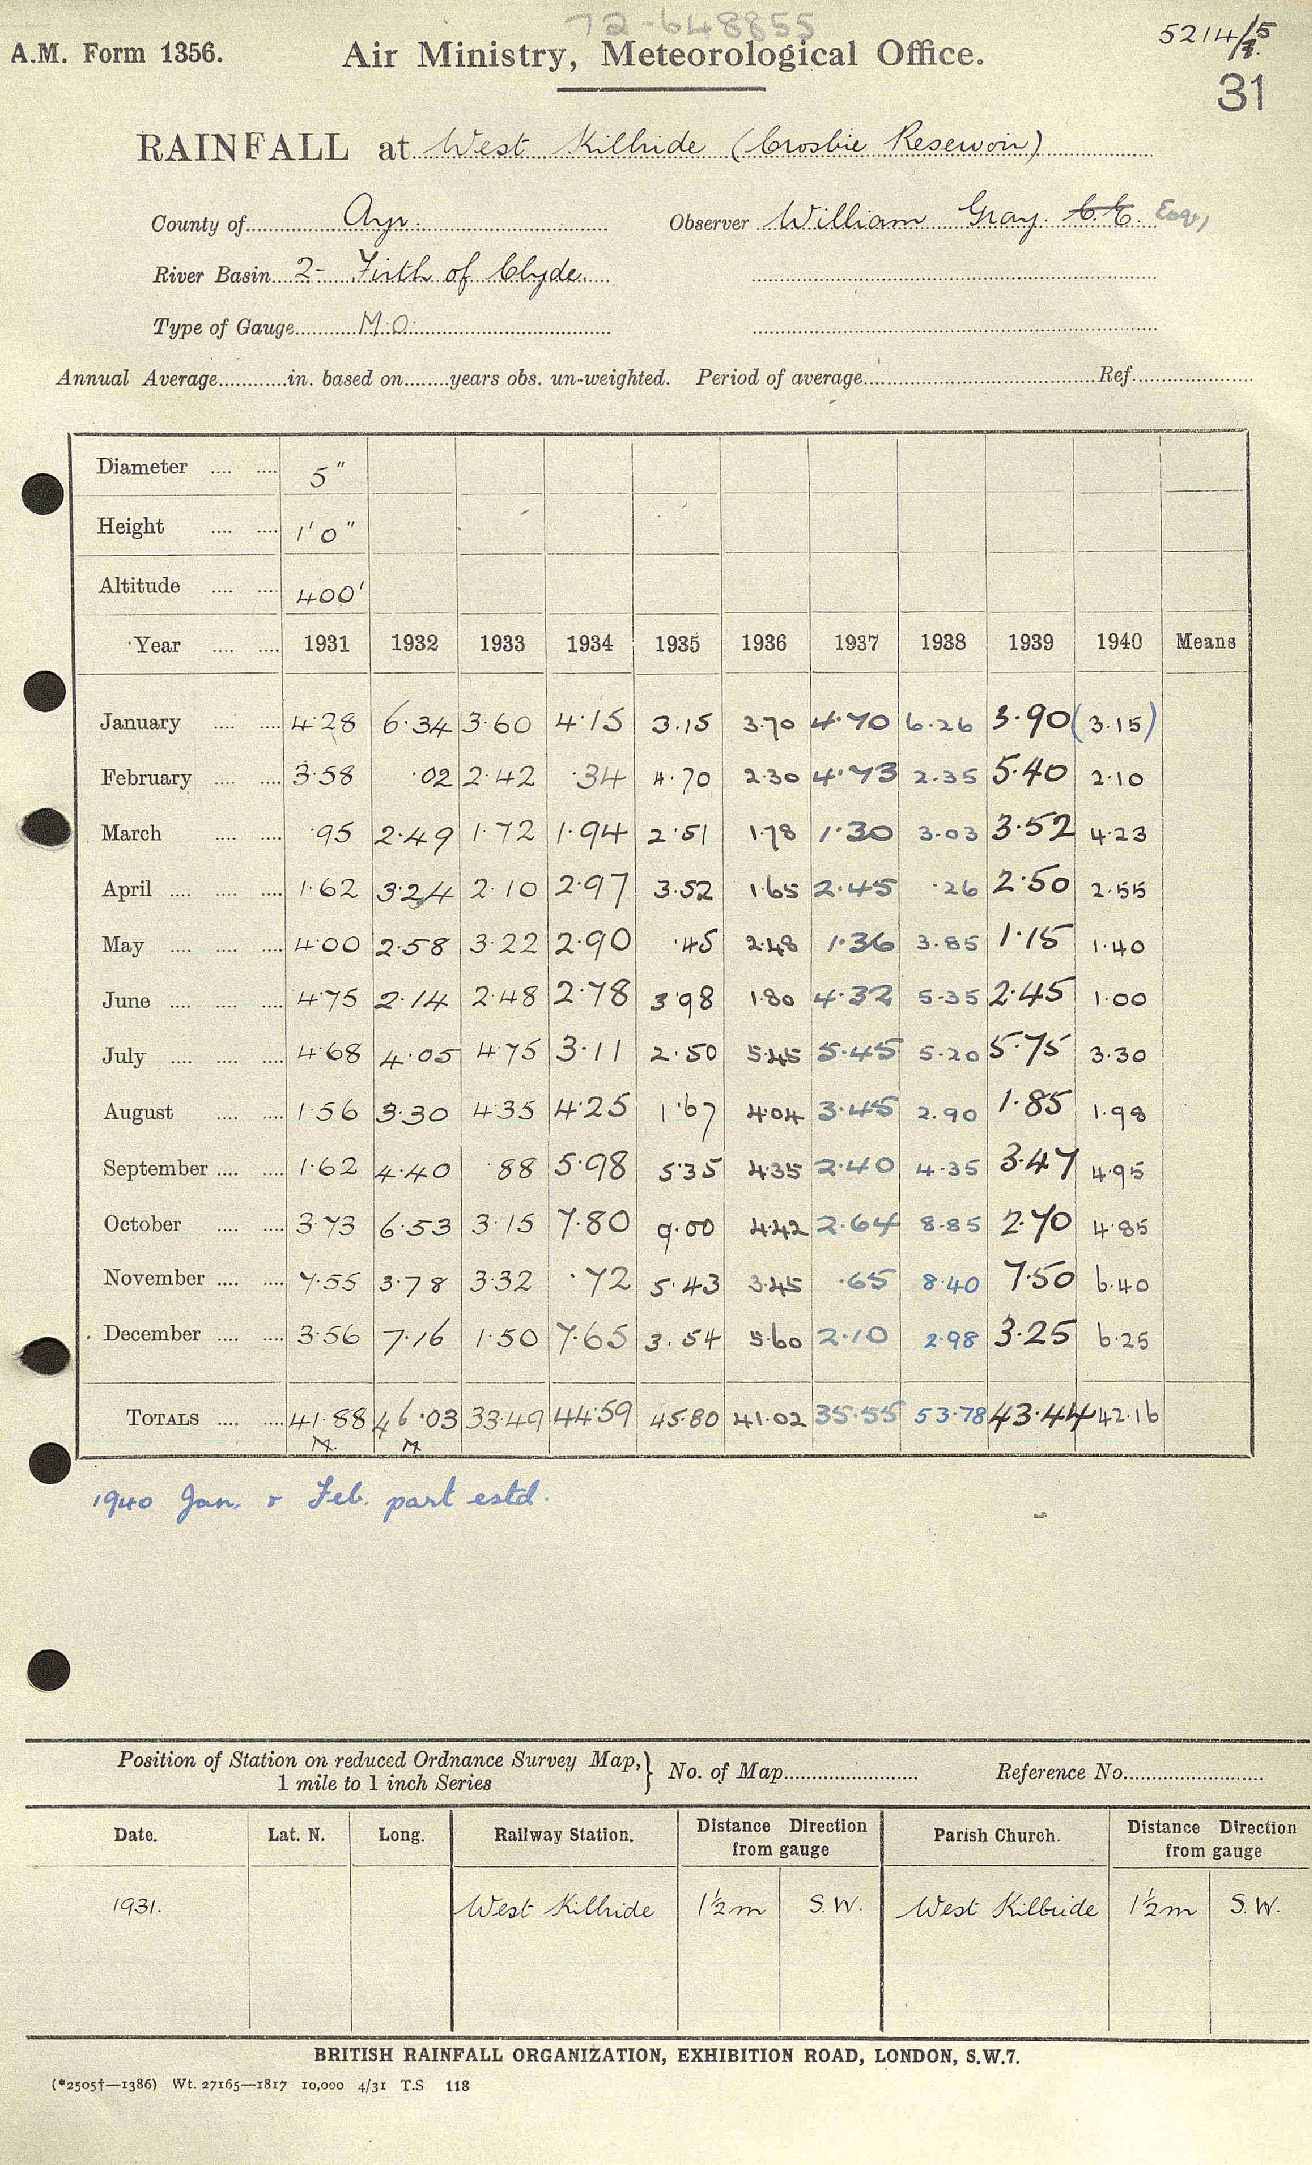 72-648855
5214/15
A.M. Form 1356. Air Ministry, Meteorological Office.
31
RAINFALL at West Kilbride (Crosbie Reservoir)
County of Ayr. Observer William Gray. C.E. Esq,
River Basin 2- Firth of Clyde
Type of Gauge M.O.
Annual Average in. based on years obs. un-weighted. Period of average Ref.
Diameter 5"
Height 1'0"
Altitude 400'
Year 1931 1932 1933 1934 1935 1936 1937 1938 1939 1940 Means
January 4.28 6.34 3.60 4.15 3.15 3.70 4.70 6.26 3.90 (3.15)
February 3.58 .02 2.42 .34 4.70 2.30 4.73 2.35 5.40 2.10
March .95 2.49 1.72 1.94 2.51 1.78 1.30 3.03 3.52 4.23
April 1.62 3.24 2.10 2.97 3.52 1.65 2.45 .26 2.50 2.55
May 4.00 2.58 3.22 2.90 .45 2.48 1.36 3.85 1.15 1.40
June 4.75 2.14 2.48 2.78 3.98 1.80 4.32 5.35 2.45 1.00
July 4.68 4.05 4.75 3.11 2.50 5.45 5.45 5.20 5.75 3.30
August 1.56 3.30 4.35 4.25 1.67 4.04 3.45 2.90 1.85 1.98
September 1.62 4.40 .88 5.98 5.35 4.35 2.40 4.35 3.47 4.95
October 3.73 6.53 3.15 7.80 9.00 4.42 2.64 8.85 2.70 4.85
November 7.55 3.78 3.32 .72 5.43 3.45 .65 8.40 7.50 6.40
December 3.56 7.16 1.50 7.65 3.54 5.60 2.10 2.98 3.25 6.25
TOTALS 41.88 46.03 33.49 44.59 45.80 41.02 35.55 53.78 43.44 42.16
M. M
1940 Jan. & Feb. part estd.
Position of Station on reduced Ordnance Survey Map, 1 mile to 1 inch Series } No. of Map Reference No.
Date. Lat. N. Long. Railway Station. Distance Direction from gauge Parish Church. Distance Direction from gauge
1931. West Kilbride 1½m S.W. West Kilbride 1½m S.W.
BRITISH RAINFALL ORGANIZATION, EXHIBITION ROAD, LONDON, S.W.7.
(*2505†—1386) Wt. 27165—1817 10,000 4/31 T.S 118